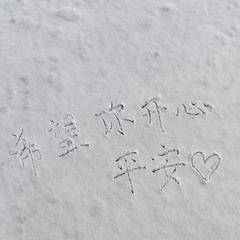 希望你开心
平安♡